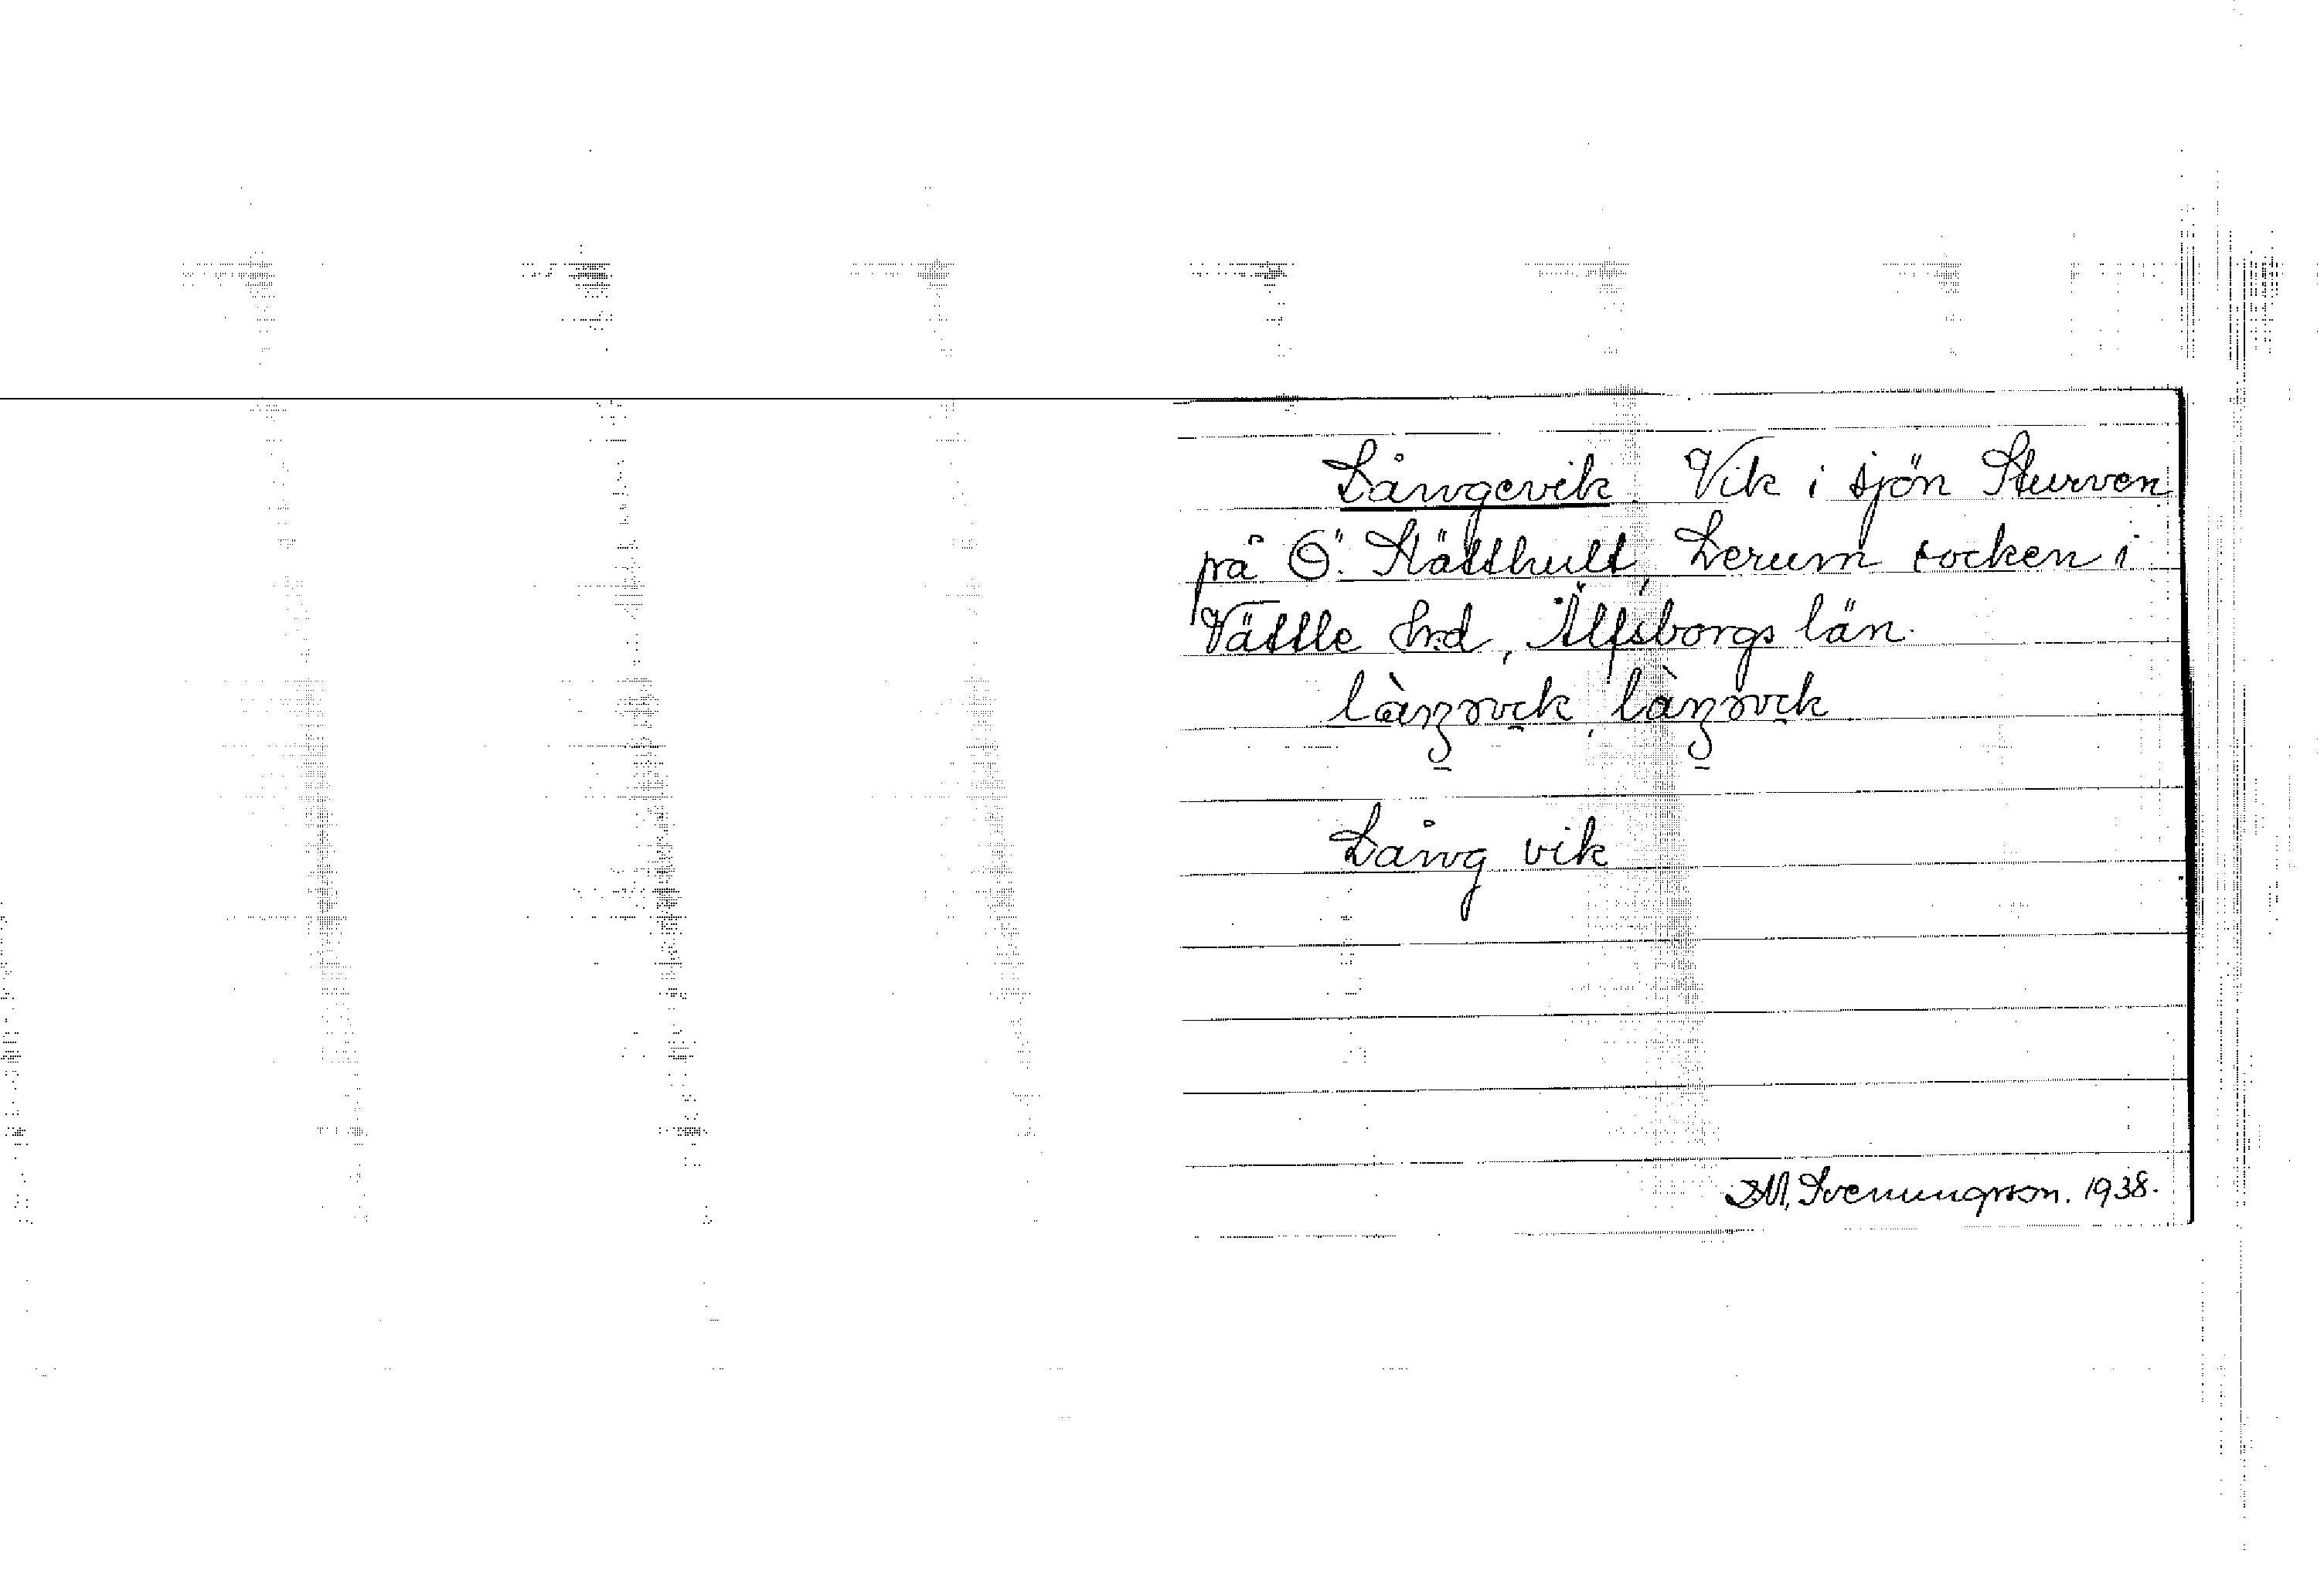 Långevik. Vik i sjön Sturven
på Ö. Stätthult, Lerum socken i
Vättle hrd, Älfsborgs län.
Lång vik
J.M. Svenungsson. 1938.